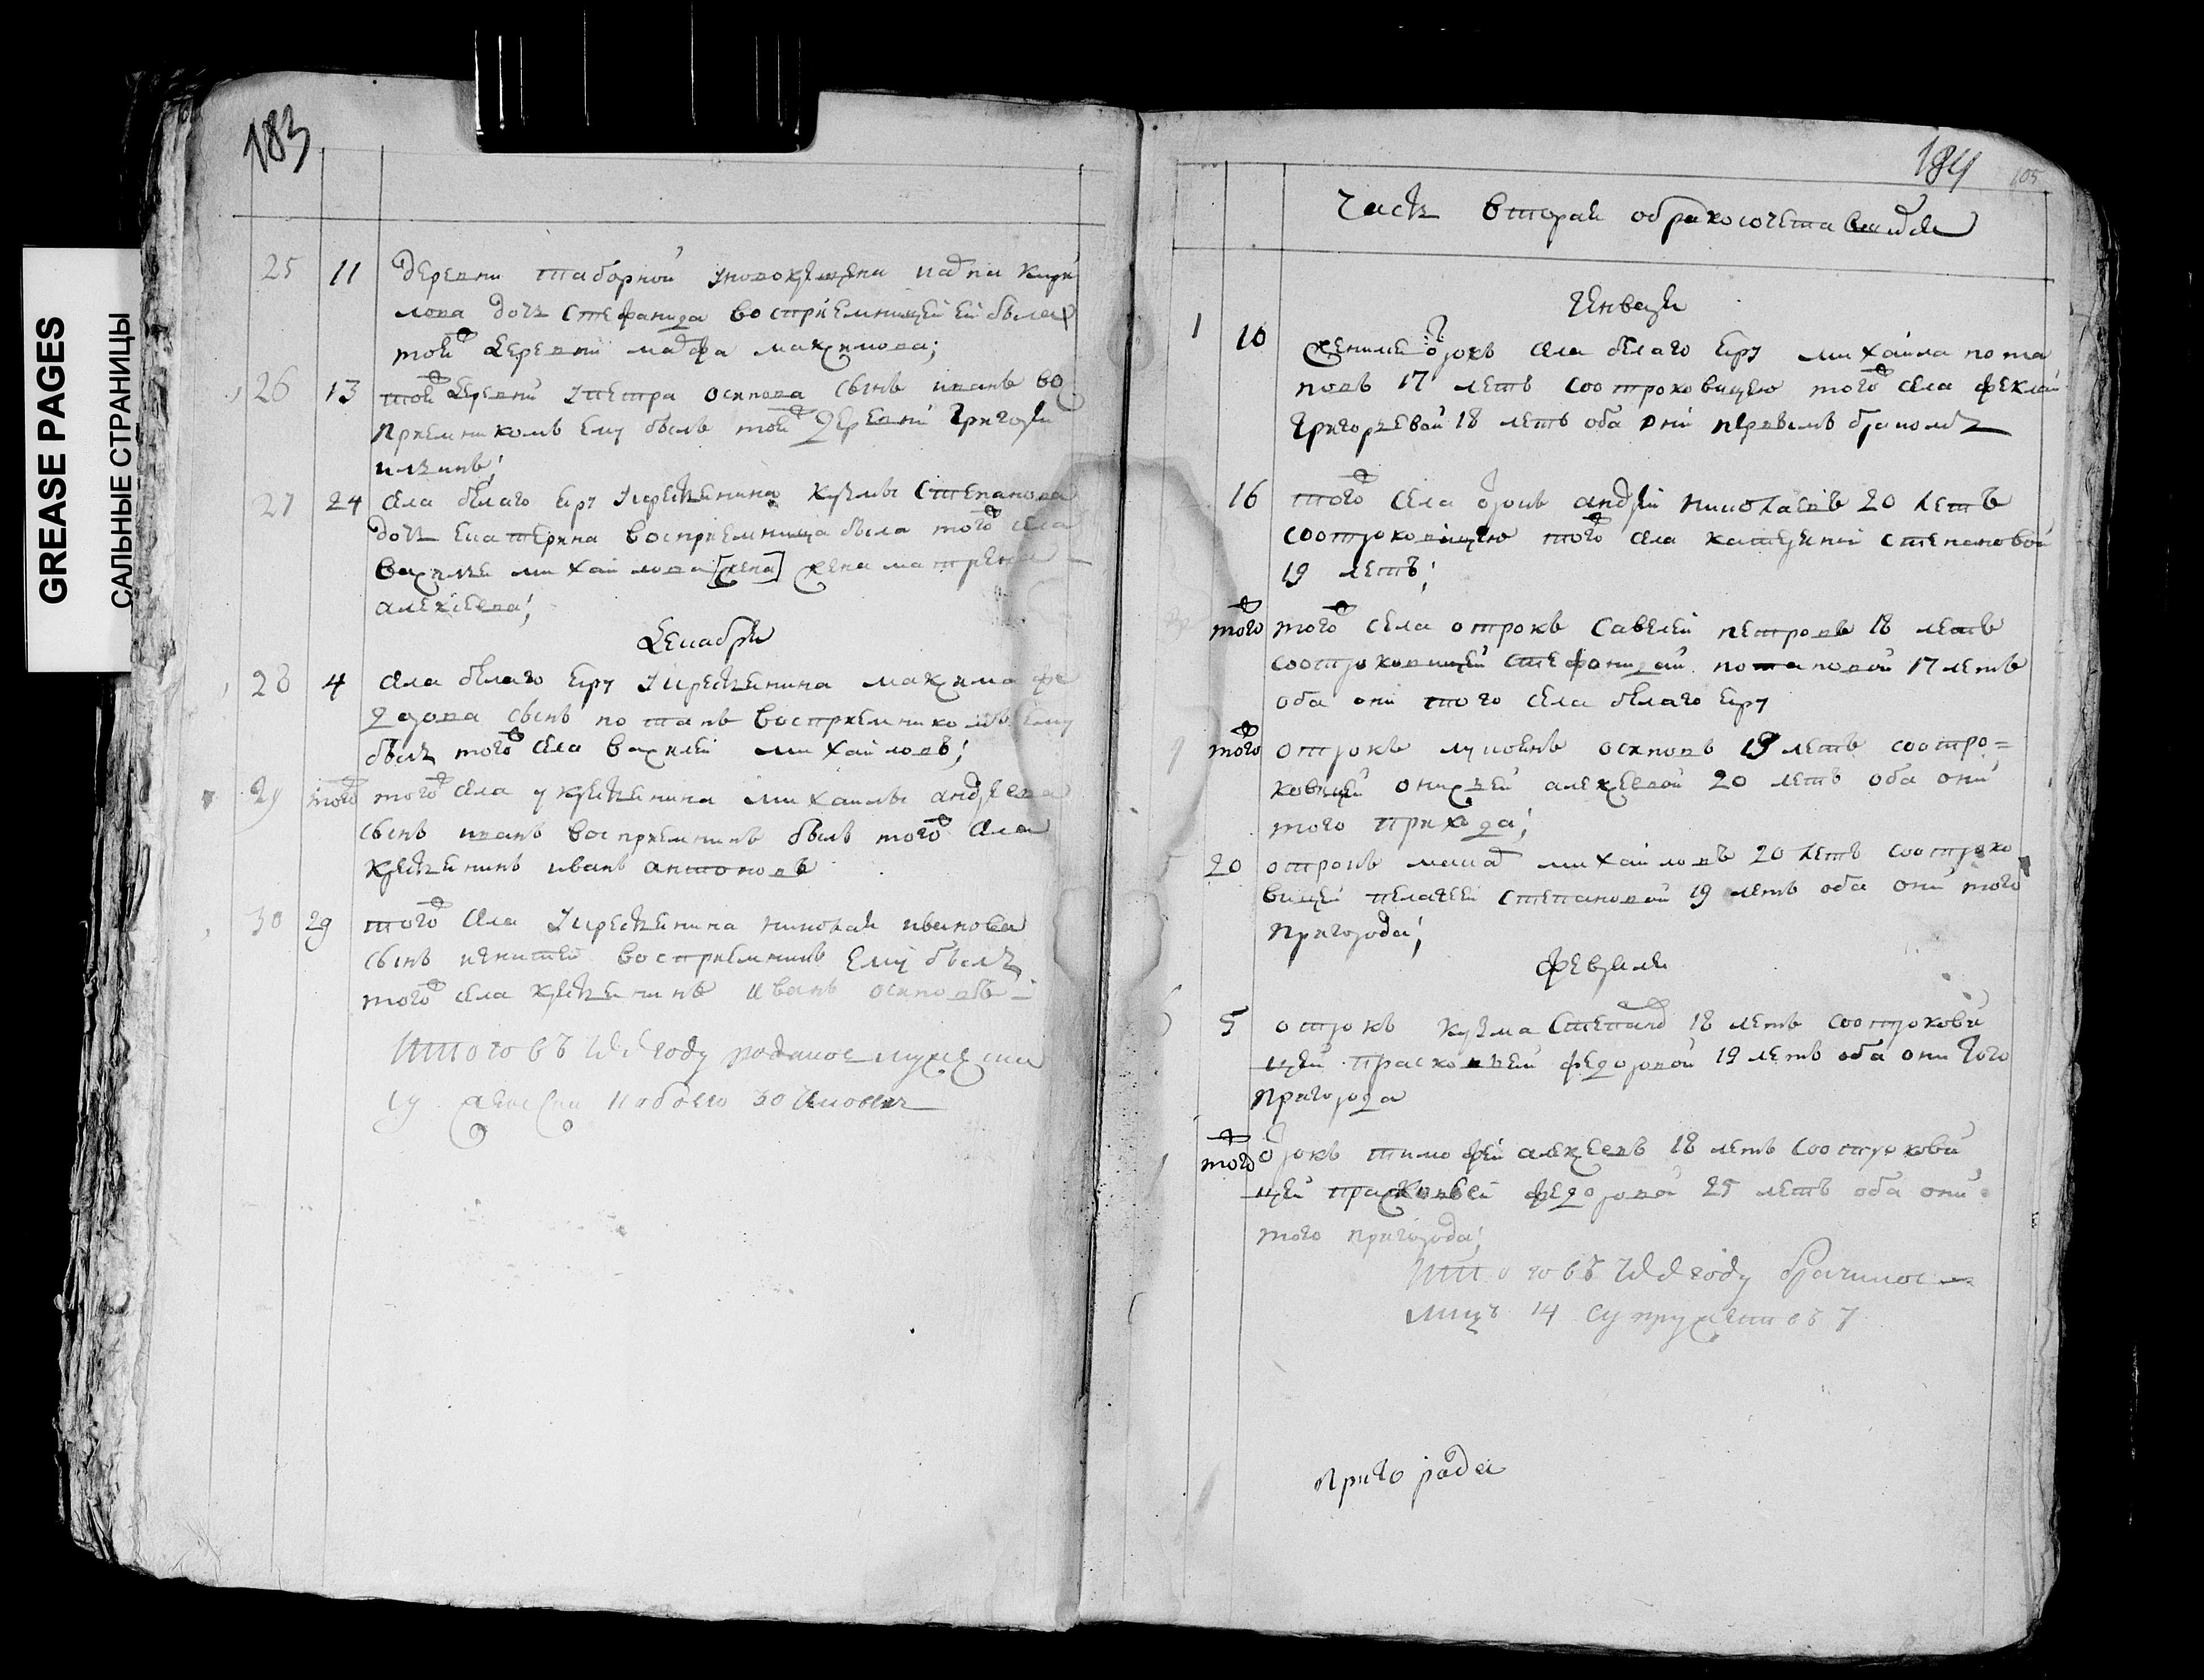 GREASE PAGES
САЛЬНЫЕ СТРАНИЦЫ
183
25 11 деревни таборной
лова дочь стефанида восприемницей ей была
той деревни марфа максимова;
26 13 той деревни у петра осипова сынъ иванъ во
приемникомъ ему былъ той деревни григорей
27 24 села белаго яру у крестьянина кузмы степанова
дочь екатерина восприемница была того села
василья михайлова [жена] жена матрена
алексеева;
декабрь
28 4 села белаго яру у крестьянина максима фе
дорова сынъ потапъ восприемникомъ ему
былъ того села василей михайловъ;
29 того того села у крестьянина михаилы андреева
сынъ иванъ восприемникъ былъ того села
крестьянинъ иванъ антоновъ
30 29 того села у крестьянина николая иванова
сынъ восприемникъ ему былъ
того села крестьянинъ иванъ осиповъ
Итого въ году мужеска
19 женска 11 обоего 30 человекъ
184
105
часть вторая о бракосочетавшихся
генварь
1 10 женился отрокъ села белаго яру михайла пота
повъ 17 летъ со отроковицею того села феклой
григорьевой 18 летъ оба они первымъ бракомъ
16 того села отрокъ андрей николаевъ 20 летъ
со отроковицею того села степановой
19 летъ;
того того села отрокъ савелей петровъ 18 летъ
со отроковицей стефанидой потаповой 17 летъ
оба они того села белаго яру
того отрокъ осиповъ 19 летъ со отро=
ковицей алексеевой 20 летъ оба они
того прихода;
20 отрокъ михайловъ 20 летъ со отроко
вицей пелагеей степановой 19 летъ оба они того
пригорода;
февраль
5 отрокъ кузма степанов 18 летъ со отрокови
цей прасковьей федоровой 19 летъ оба они того
пригорода
того отрокъ тимофей алексеевъ 18 летъ со отрокови
цей прасковьей федоровой 25 летъ оба они
того пригорода;
Итого въ году
лицъ 14 супружествъ 7
пригорода